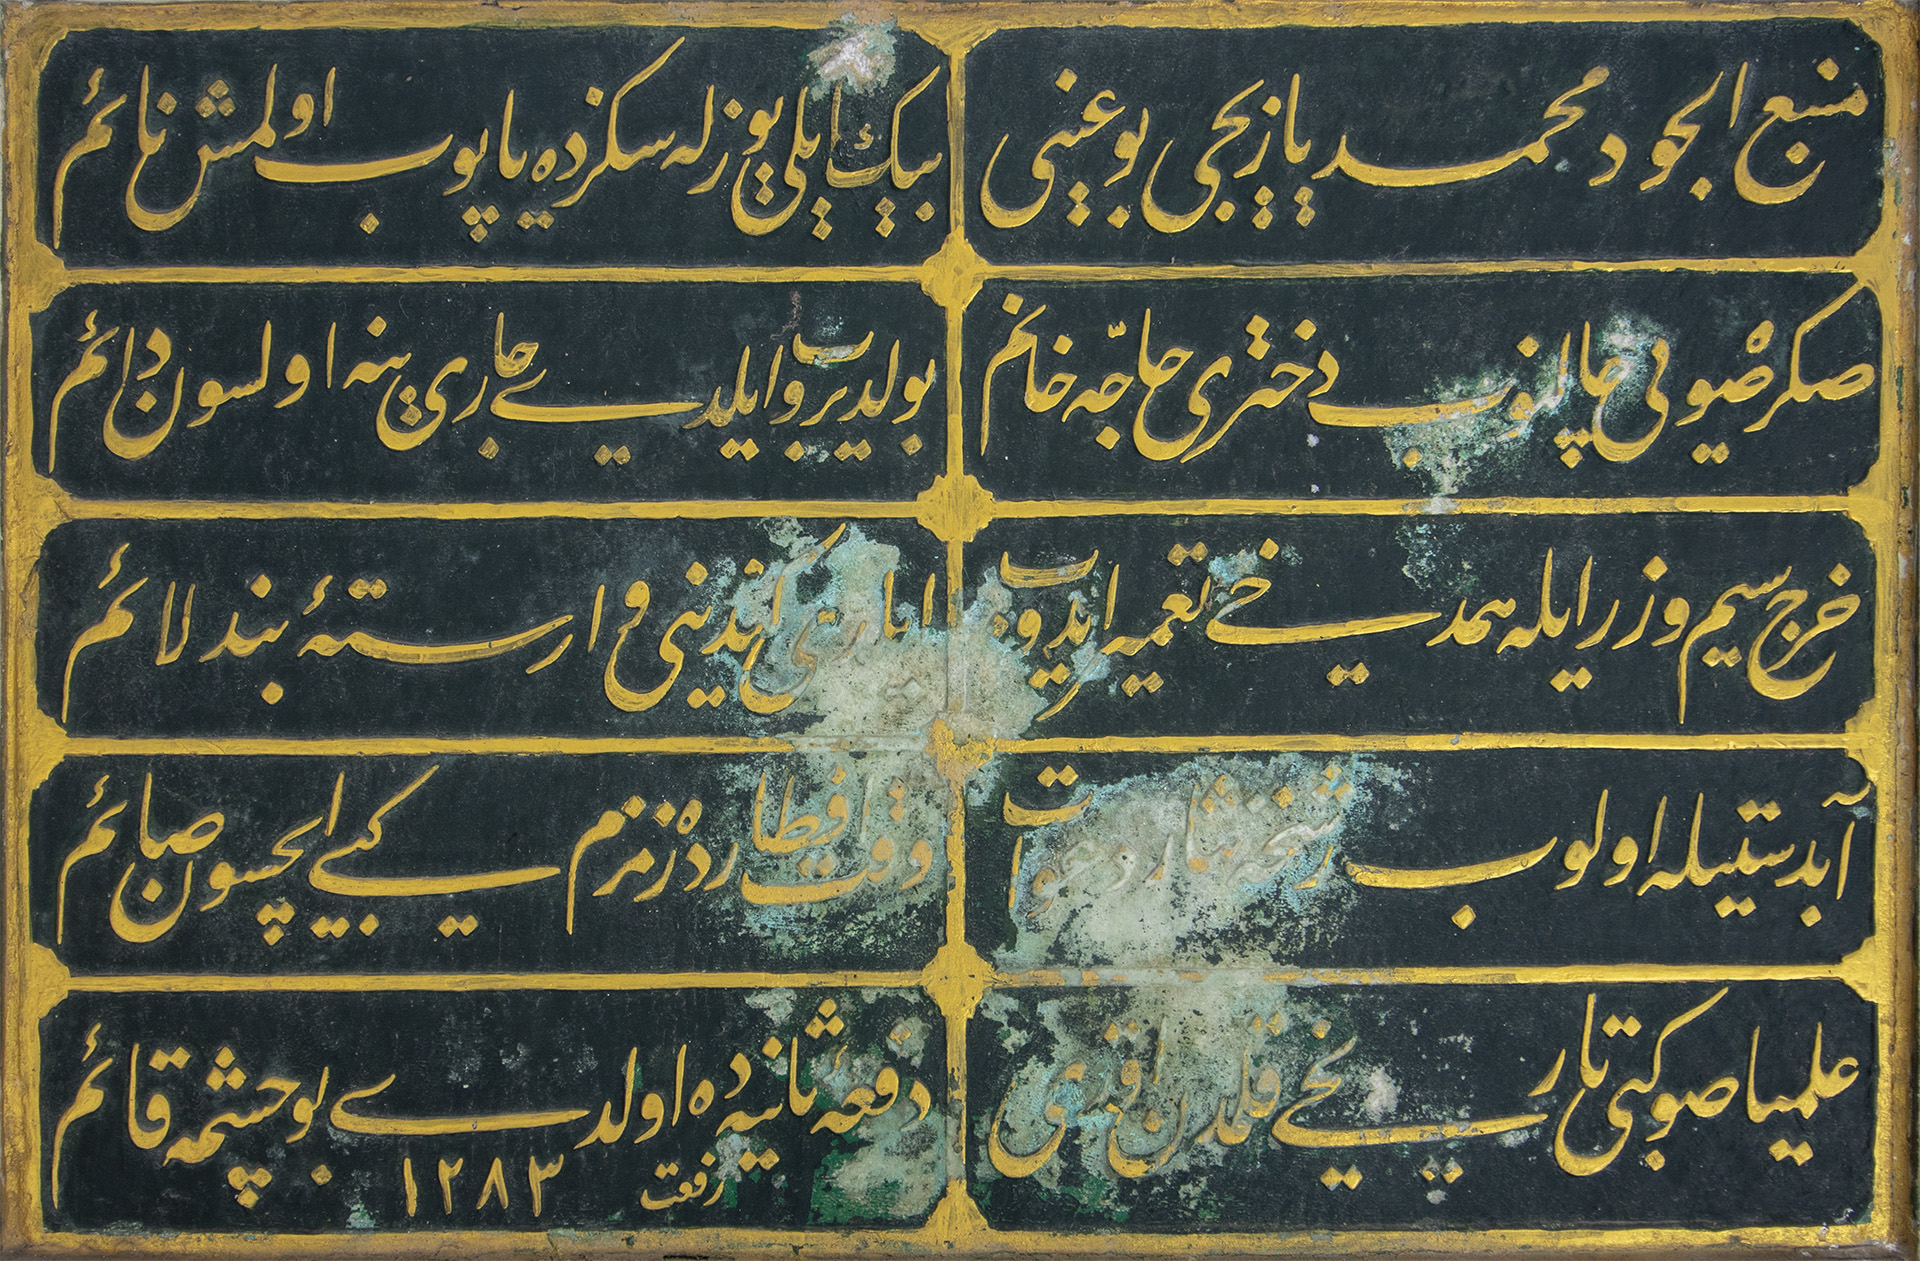 منبع الجود محمد یازیجی بو عینی
بیك ایلی یوز له سكزده یاپوب اولمش نائم
صكره صیوئی چالنوب دختری حاجّه خانم
بولدیروب ایلدی جاری ینه اولسون دائم
خرج سیم و زر ایله همدیخی تعمیر ایدوب
ایلدی كندینی وارستهٔ بند لائم
آبدستیله اولوب نثار دعوات
وقت افطارده زمزم كیبی ایچسون صائم
علمیا صو كبی تاریخی قلمدن اقدی
دفعهٔ ثانیه ده اولدی بو چشمه قائم
رفعت
١٢٨٣